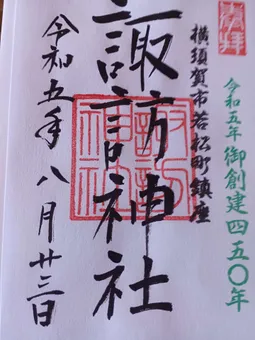 奉拝
令和五年 御創建四五〇年
横須賀市若松町鎮座
諏訪神社
諏訪神社
令和五年八月廿三日